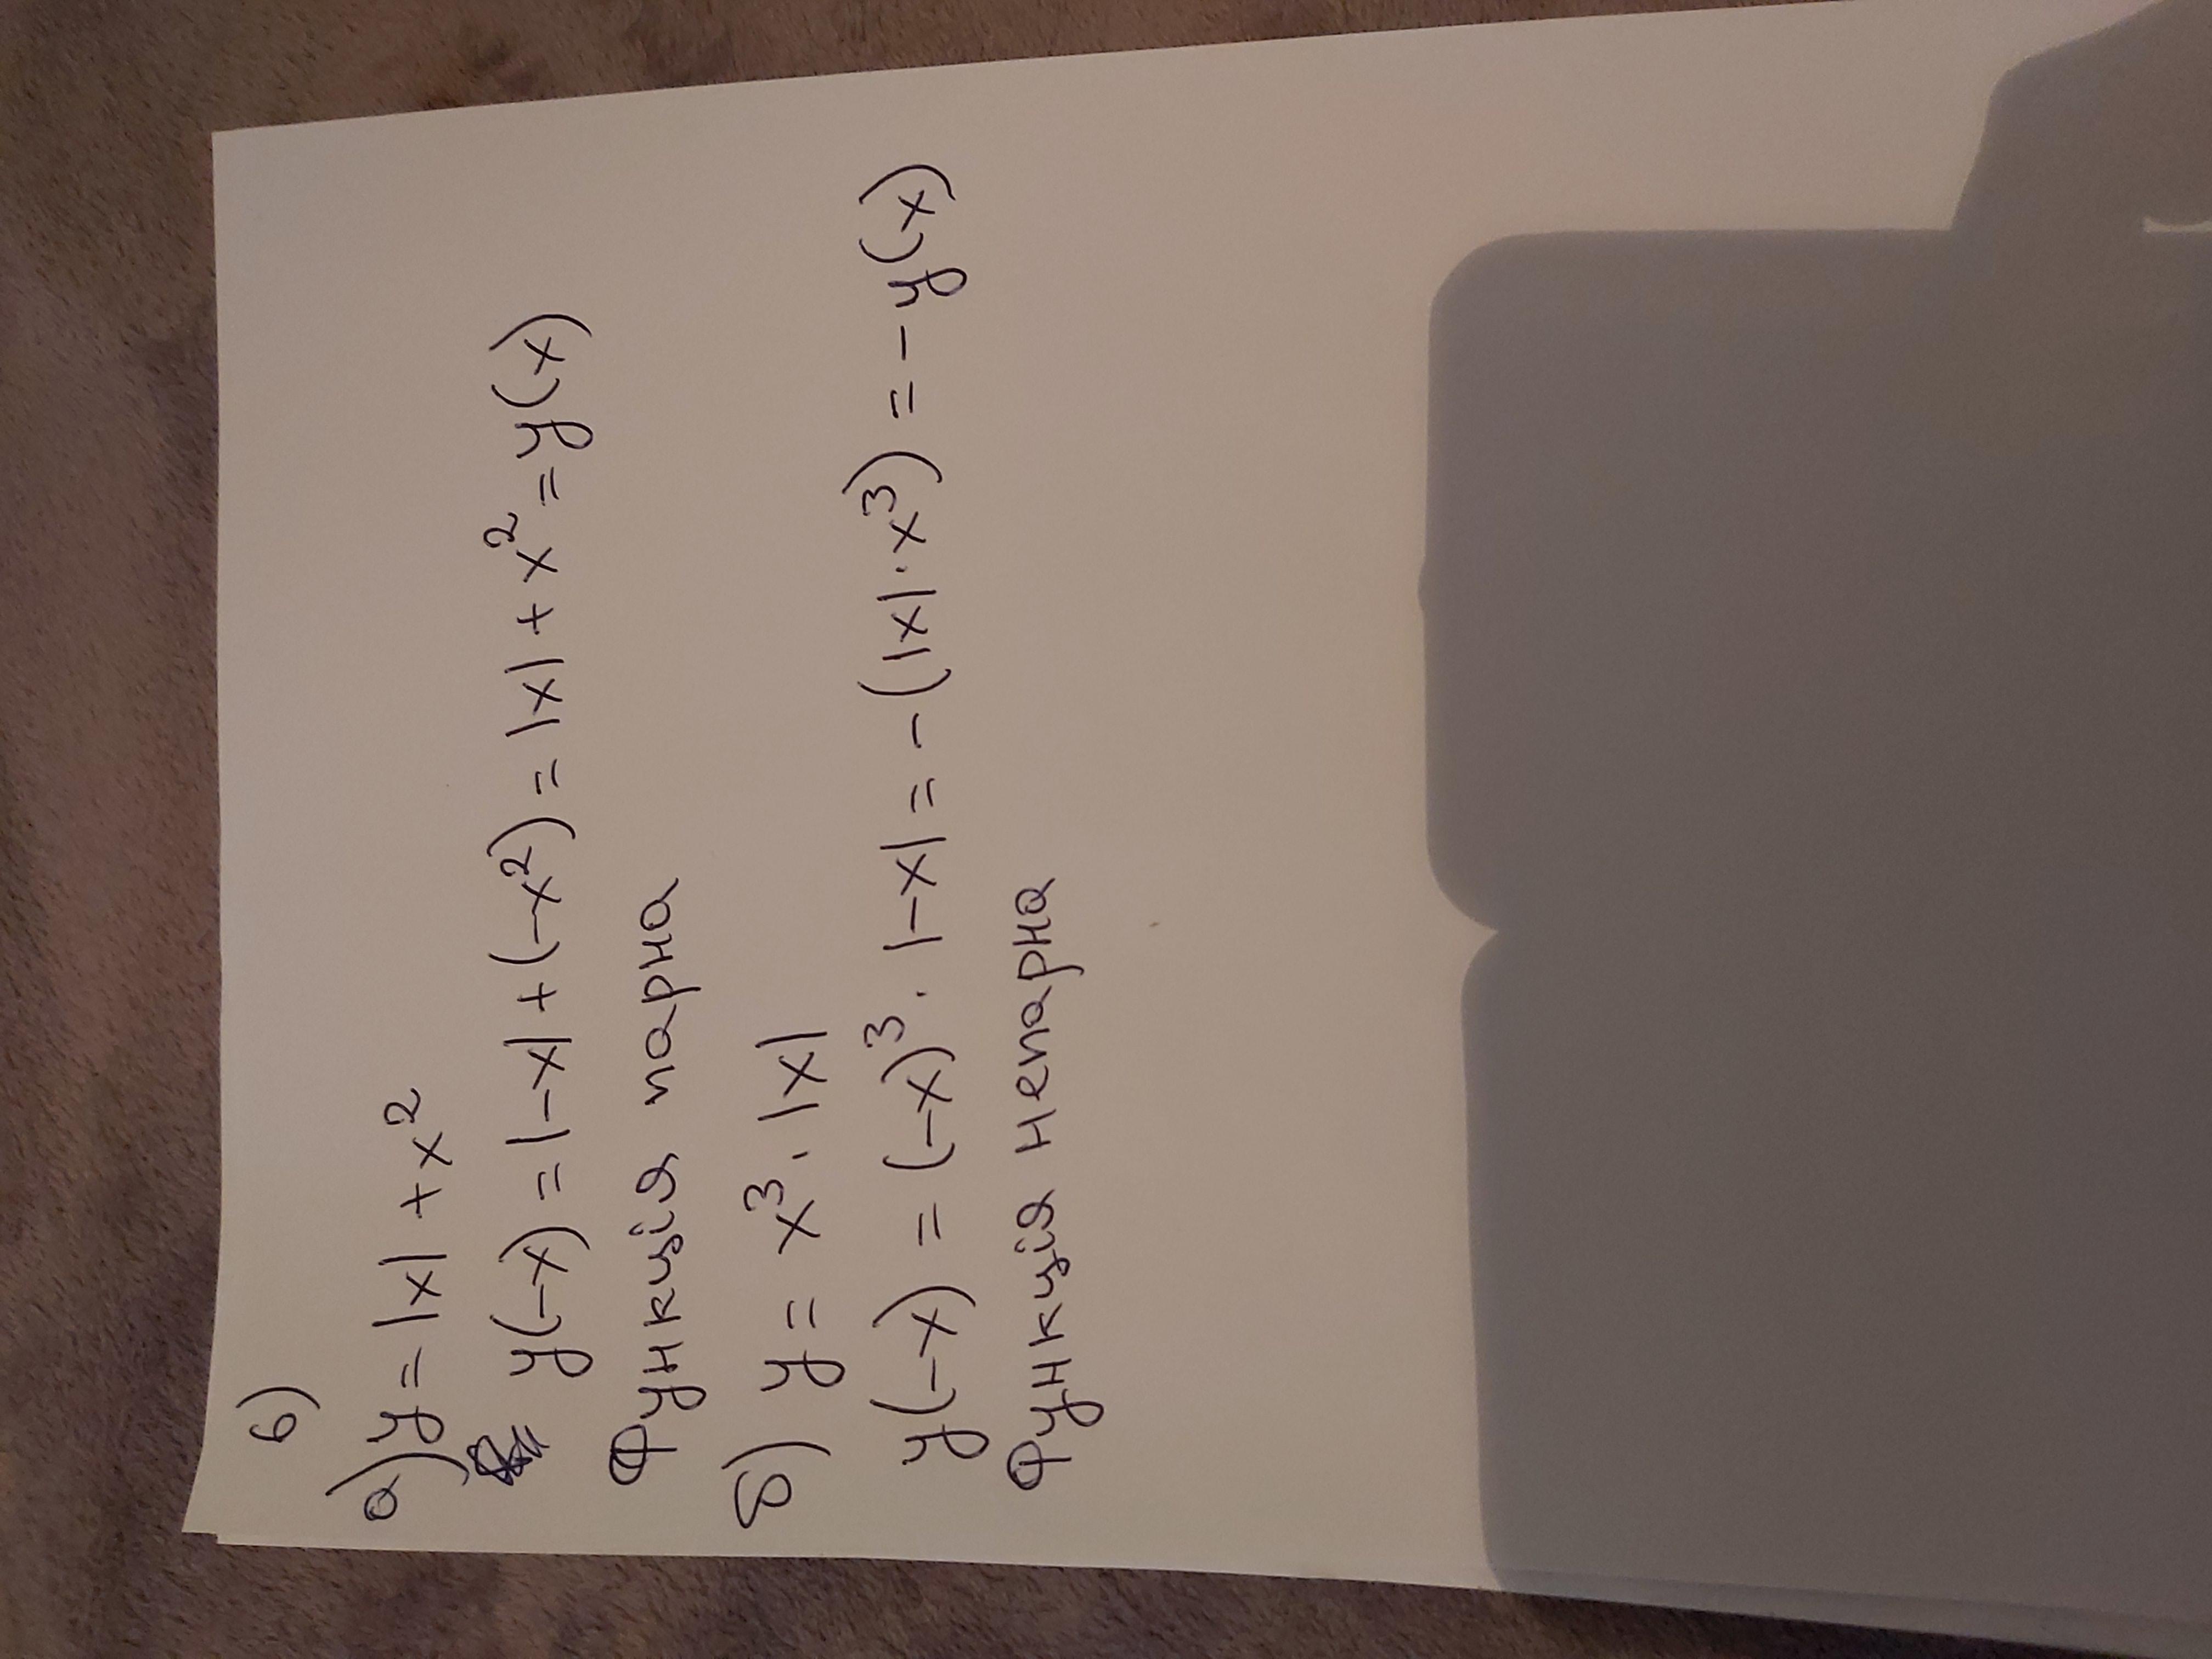 6)
а) y = |x| + x²
y(-x) = |-x| + (-x²) = |x| + x² = y(x)
Функція парна
б) y = x³ · |x|
y(-x) = (-x)³ · |-x| = -(|x| · x³) = -y(x)
Функція непарна